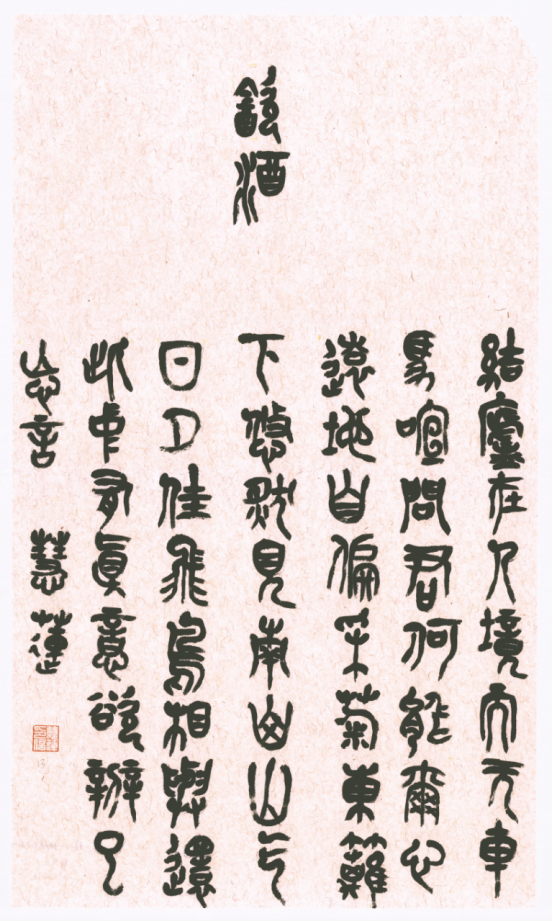 飲酒
結廬在人境而无車
馬喧問君何能爾心
遠地自偏采菊東籬
下悠然見南山山气
日夕佳飛鳥相與還
此中有真意欲辨已
忘言 慧蓮